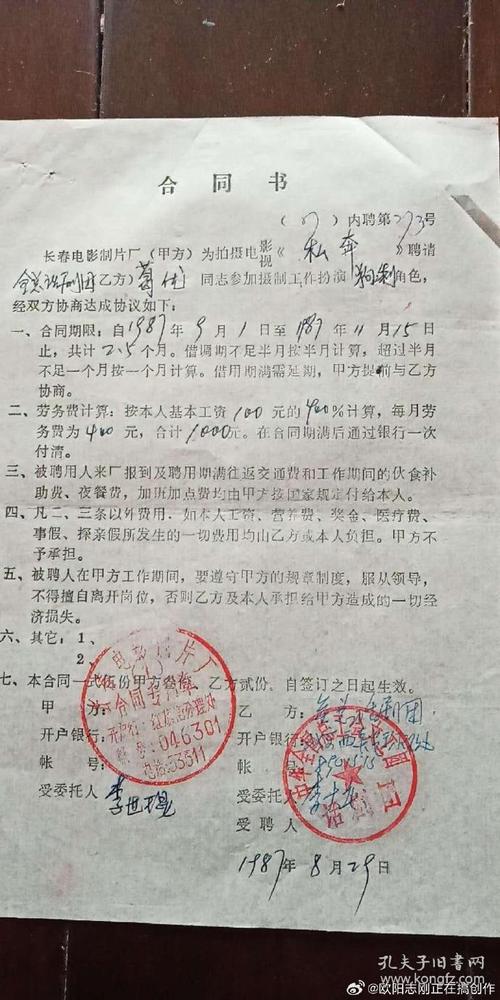 合同书
(87)内聘第273号
长春电影制片厂(甲方)为拍摄电影视《私奔》聘请
全总话剧团乙方)葛优同志参加摄制工作扮演 角色,
经双方协商达成协议如下:
一、合同期限:自1987年9月1日至1987年11月15日
止,共计2.5个月。借调期不足半月按半月计算,超过半月
不足一个月按一个月计算。借用期满需延期,甲方提前与乙方
协商。
二、劳务费计算:按本人基本工资100元的400%计算,每月劳
务费为400元,合计1000元。在合同期满后通过银行一次
付清。
三、被聘用人来厂报到及聘用期满往返交通费和工作期间的伙食补
助费、夜餐费,加班加点费均由甲方按国家规定付给本人。
四、凡二、三条以外费用,如本人工资、营养费、奖金、医疗费、
事假、探亲假所发生的一切费用均由乙方或本人负担。甲方不
予承担。
五、被聘人在甲方工作期间,要遵守甲方的规章制度,服从领导,
不得擅自离开岗位,否则乙方及本人承担给甲方造成的一切经
济损失。
六、其它:1、
2、
七、本合同一式伍份甲方叁份,乙方贰份。自签订之日起生效。
甲方:
乙方:全总话剧团
开户银行:
开户银行:
帐号:
帐号:
受委托人
受委托人
受聘人
1987年8月29日
电影制片厂
合同专用章
开户行:红旗街办理处
帐号:046301
电话:53511
话剧团
孔夫子旧书网
@欧阳志刚正在搞创作